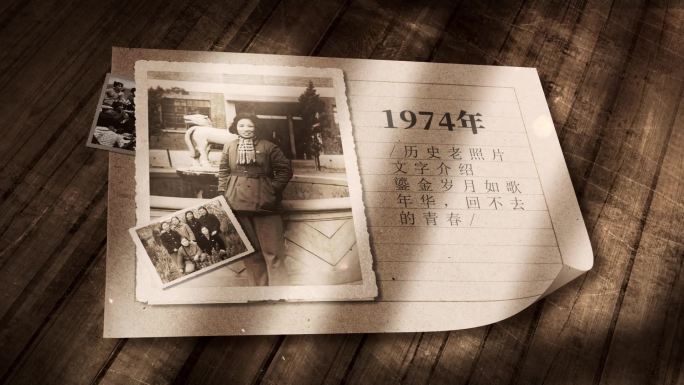 1974年
/历史老照片
文字介绍
鎏金岁月如歌
年华，回不去
的青春/